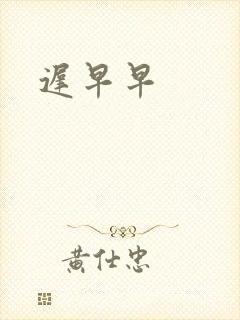 遲早早
黄仕忠